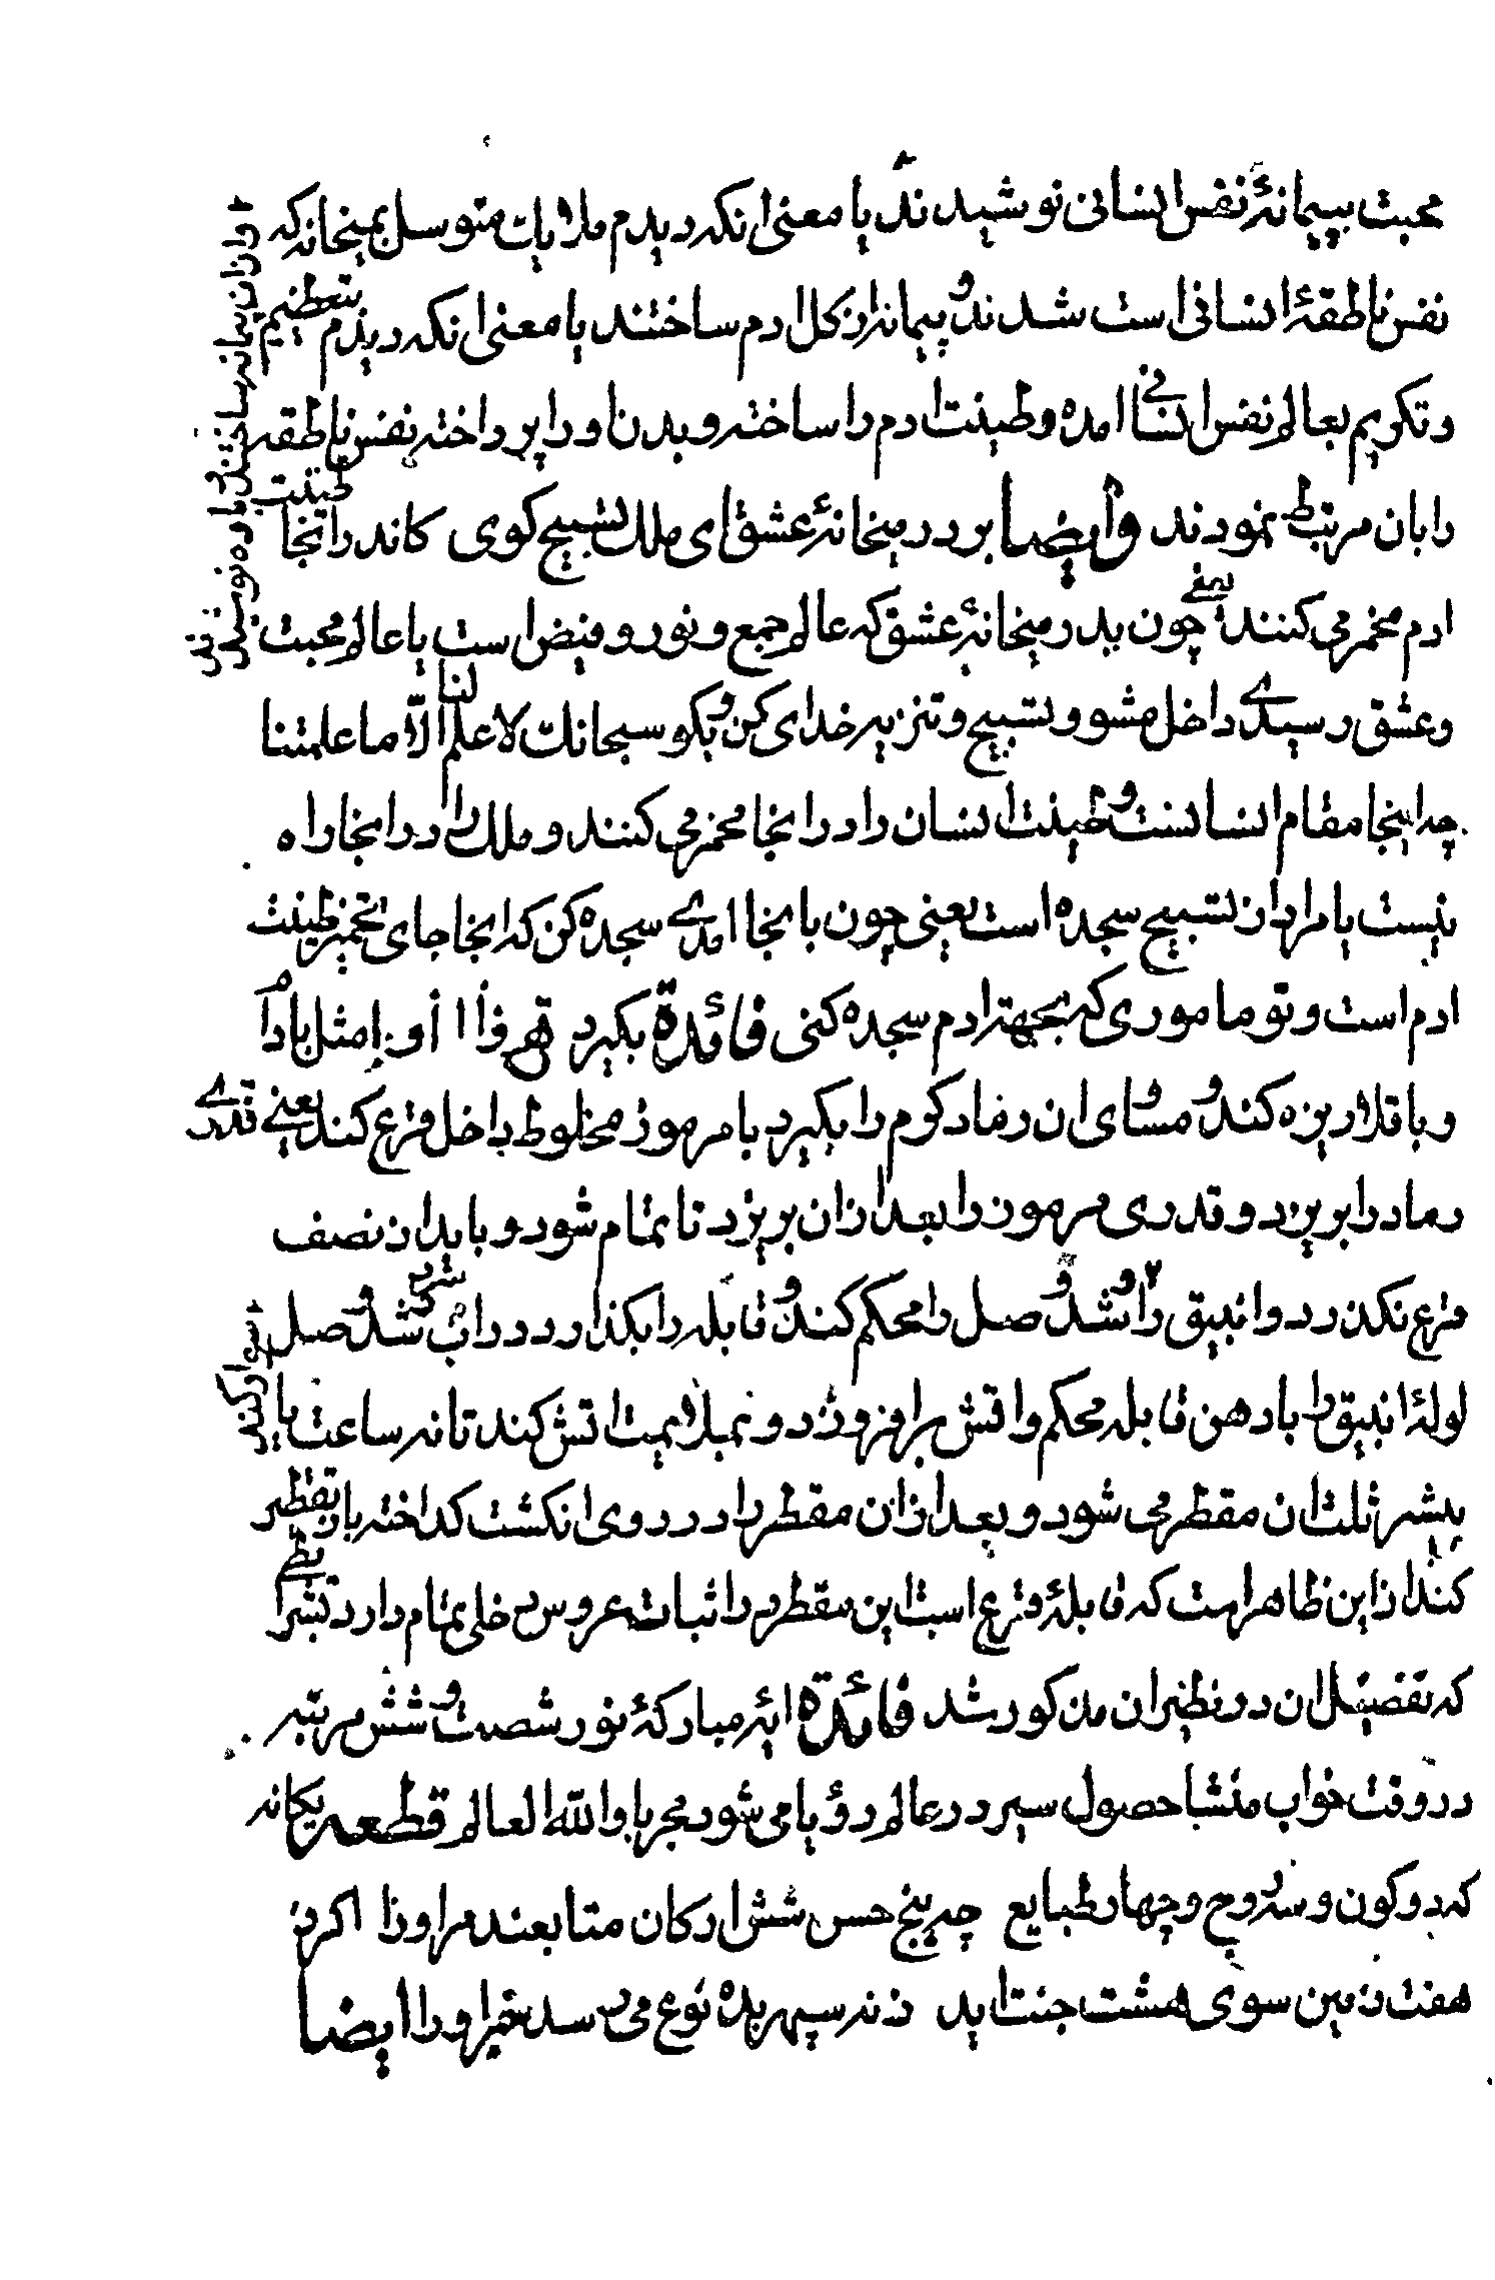 محبت بپیمانهٔ نفس انسانی نوشیدند یا معنی انکه دیدم ملایک متوسل بمیخانه که
نفس ناطقهٔ انسانی است شدند و پیمانه از کل ادم ساختند یا معنی انکه دیدم بتعظیم
و تکریم بعالم نفس انسانی امده و طینت ادم را ساخته و بدن او را پرداخته نفس ناطقه
را بان مرتبط نمودند وایضا بر در میخانهٔ عشق ای ملک تسبیح کوی کاندرانجا طینت
ادم مخمر می کنند یعنی چون بدر میخانهٔ عشق که عالم جمع و نور و فیض است یا عالم محبت
و عشق رسیدی داخل مشو و تسبیح و تنزیه خدای کن و بکو سبحانك لا علم لنا الّا ما علمتنا
چه اینجا مقام انسانست و طینت انسان را در انجا مخمر می کنند و ملك را در انجا راه
نیست یا مراد از تسبیح سجده است یعنی چون بانجا امدی سجده کن که انجا جای تخمیر طینت
ادم است و تو ماموری که بجهت ادم سجده کنی فائدة بکیرد
و باقلا ریزه کند و مساوی ان رماد کوم را بکیرد با مرموز مخلوط داخل قرع کند یعنی قدری
رماد را بریزد و قدری مرموز را بعد از ان بریزد تا تمام شود و باید از نصف
قرع نکذرد و انبیق را و شد و صل را محکم کند و قابله را بکذارد در اب سرد و شد و صل
لولهٔ انبیق را با دهن قابله محکم و اتش برافروزد و بملایمت اتش کند تا نه ساعت یا
بیشتر ثلث ان مقطر می شود و بعد از ان مقطر را در روی انکشت کداخته باز تقطیر
کند از این ظاهر است که قابلهٔ قرع است این مقطر در اثبات عروس دخلی تمام دارد بتشرا بطی
که تفضیل ان در نظیر ان مذکور شد فائدة ایهٔ مبارکهٔ نور شصت و شش مرتبه
در وقت خواب منشا حصول سیر در عالم رؤیا می شود مجربا والله العالم قطعه یکانه
که دو کون و سه روح و چهار طبایع چه پنج حس شش ارکان متابعند مر او را اکر
هفت زمین سوی هشت جنت اید ز نه سپهر بده نوع می رسد خبر او را ایضا
و از ان پیمانه ساختند باده نوشیدند